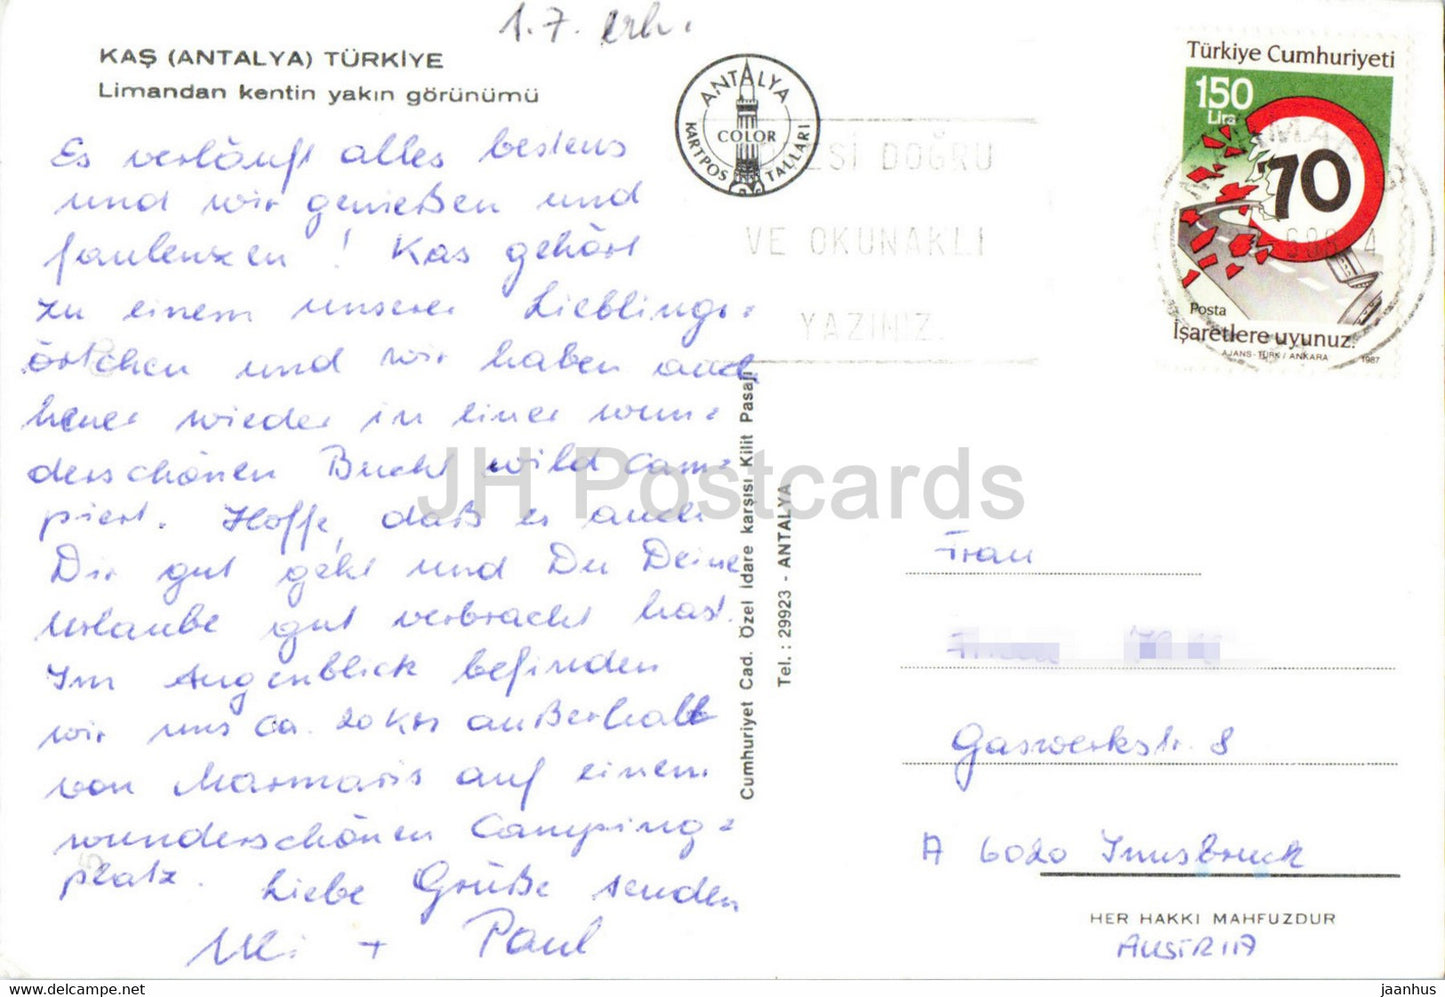 1.7. erh.
KAŞ (ANTALYA) TÜRKİYE
Limandan kentin yakın görünümü
Es verläuft alles bestens
und wir genießen und
faulenzen! Kas gehört
zu einem unserer Lieblings=
örtchen und wir haben auch
heuer wieder in einer wun=
derschönen Bucht wild cam=
piert. Hoffe, daß es auch
Dir gut geht und Du Deine
Urlaube gut verbracht hast.
Im Augenblick befinden
wir uns ca. 20 km außerhalb
von Marmaris auf einem
wunderschönen Camping=
platz. Liebe Grüße senden
Uli + Paul
ANTALYA
COLOR
KARTPOSTALLARI
DOĞRU
VE OKUNAKLI
YAZINIZ
Türkiye Cumhuriyeti
150
Lira
70
Posta
İşaretlere uyunuz.
AJANS-TÜRK / ANKARA 1987
Cumhuriyet Cad. Özel idare karşısı Kilit Pasajı
Tel.: 29923 - ANTALYA
JH Postcards
Frau
Gaswerkstr. 8
A 6020 Innsbruck
HER HAKKI MAHFUZDUR
AUSTRIA
jaanhus
www.delcampe.net